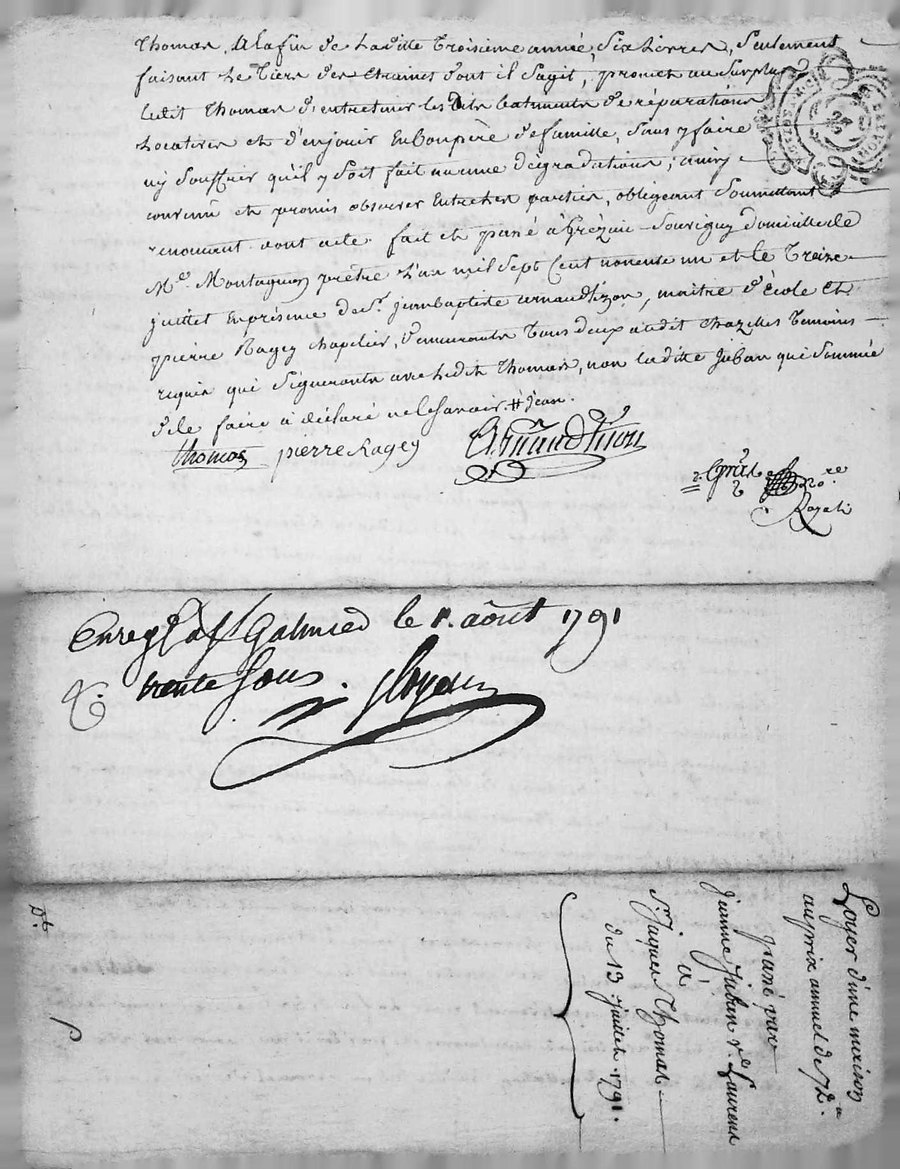 Thomas, A la fin de Laditte Troisieme année Six Livres, Seulement
faisant Le Tiers des Etraines dont il Sagit, promet au Surplus
Ledit Thomas d'entretenir les dits batiments de réparations
Locatives et d'en jouir En bon père de famille, Sans y faire
ny Souffrir qu'il y Soit fait aucune dégradations; ainsy
convenu et promis observer Entre les parties, obligeant Soumettant
renonçant dont acte fait et passé à Grézieu - Souvigny domicille de
Mre. Montagnon prêtre L'an mil Sept Cent nonente un et le Treize
juillet En présence de Sr. jean baptiste arnaud tizon, maitre d'École Et
pierre Ragey chapelier, demeurants Tous deux audit Chazelles Temoins
requis qui Signeronts avec Ledit Thomas, non laditte Juban qui Sommée
de le faire à déclaré ne le Savoir. # jean.
thomas pierre Ragey Arnaud Tison
nore
Royal
Enregé à St Galmier le 1r. août 1791
R. trente Sous.
Loyer d'une maison
au prix annuel de 72#
passé par
Jeanne Juban ve Laurent
à
Sr. Jaques Thomas
du 13 juillet 1791.